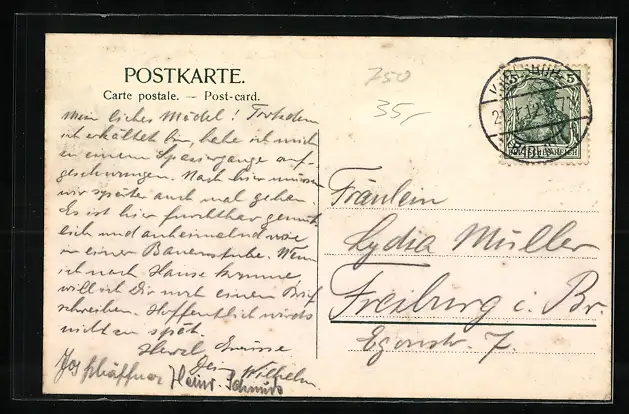 POSTKARTE.
Carte postale. — Post-card.
750
35,-
Mein liches Mädel! Trotzdem
ich erkältet bin, habe ich mich
zu einem Spaziergange auf-
geschwungen. Nach hier müssen
wir später auch mal gehen
Es ist hier furchtbar gemüt-
lich und anheimelnd wie
in einer Bauernstube. Wenn
ich nach Hause komme
will ich Dir noch einen Brief
schreiben. Hoffentlich wird's
nicht zu spät.
Herzl. Grüsse
Dein Wilhelm.
Jos Pfaffner Heinr. Schmidt
5
BADEN
Fräulein
Lydia Müller
Freiburg i. Br.
Egonstr. 7.